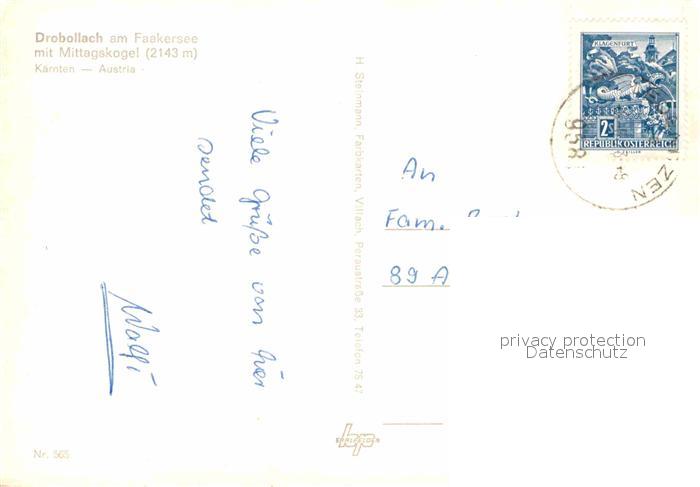 Drobollach am Faakersee
mit Mittagskogel (2143 m)
Kärnten — Austria
Viele Grüße von hier
sendet
H. Steinmann, Farbkarten, Villach, Peraustraße 33, Telefon 75 47
KLAGENFURT
2S
REPUBLIK ÖSTERREICH
958
ZEN
An
Fam.
89 A
privacy protection
Datenschutz
bp
Nr. 565